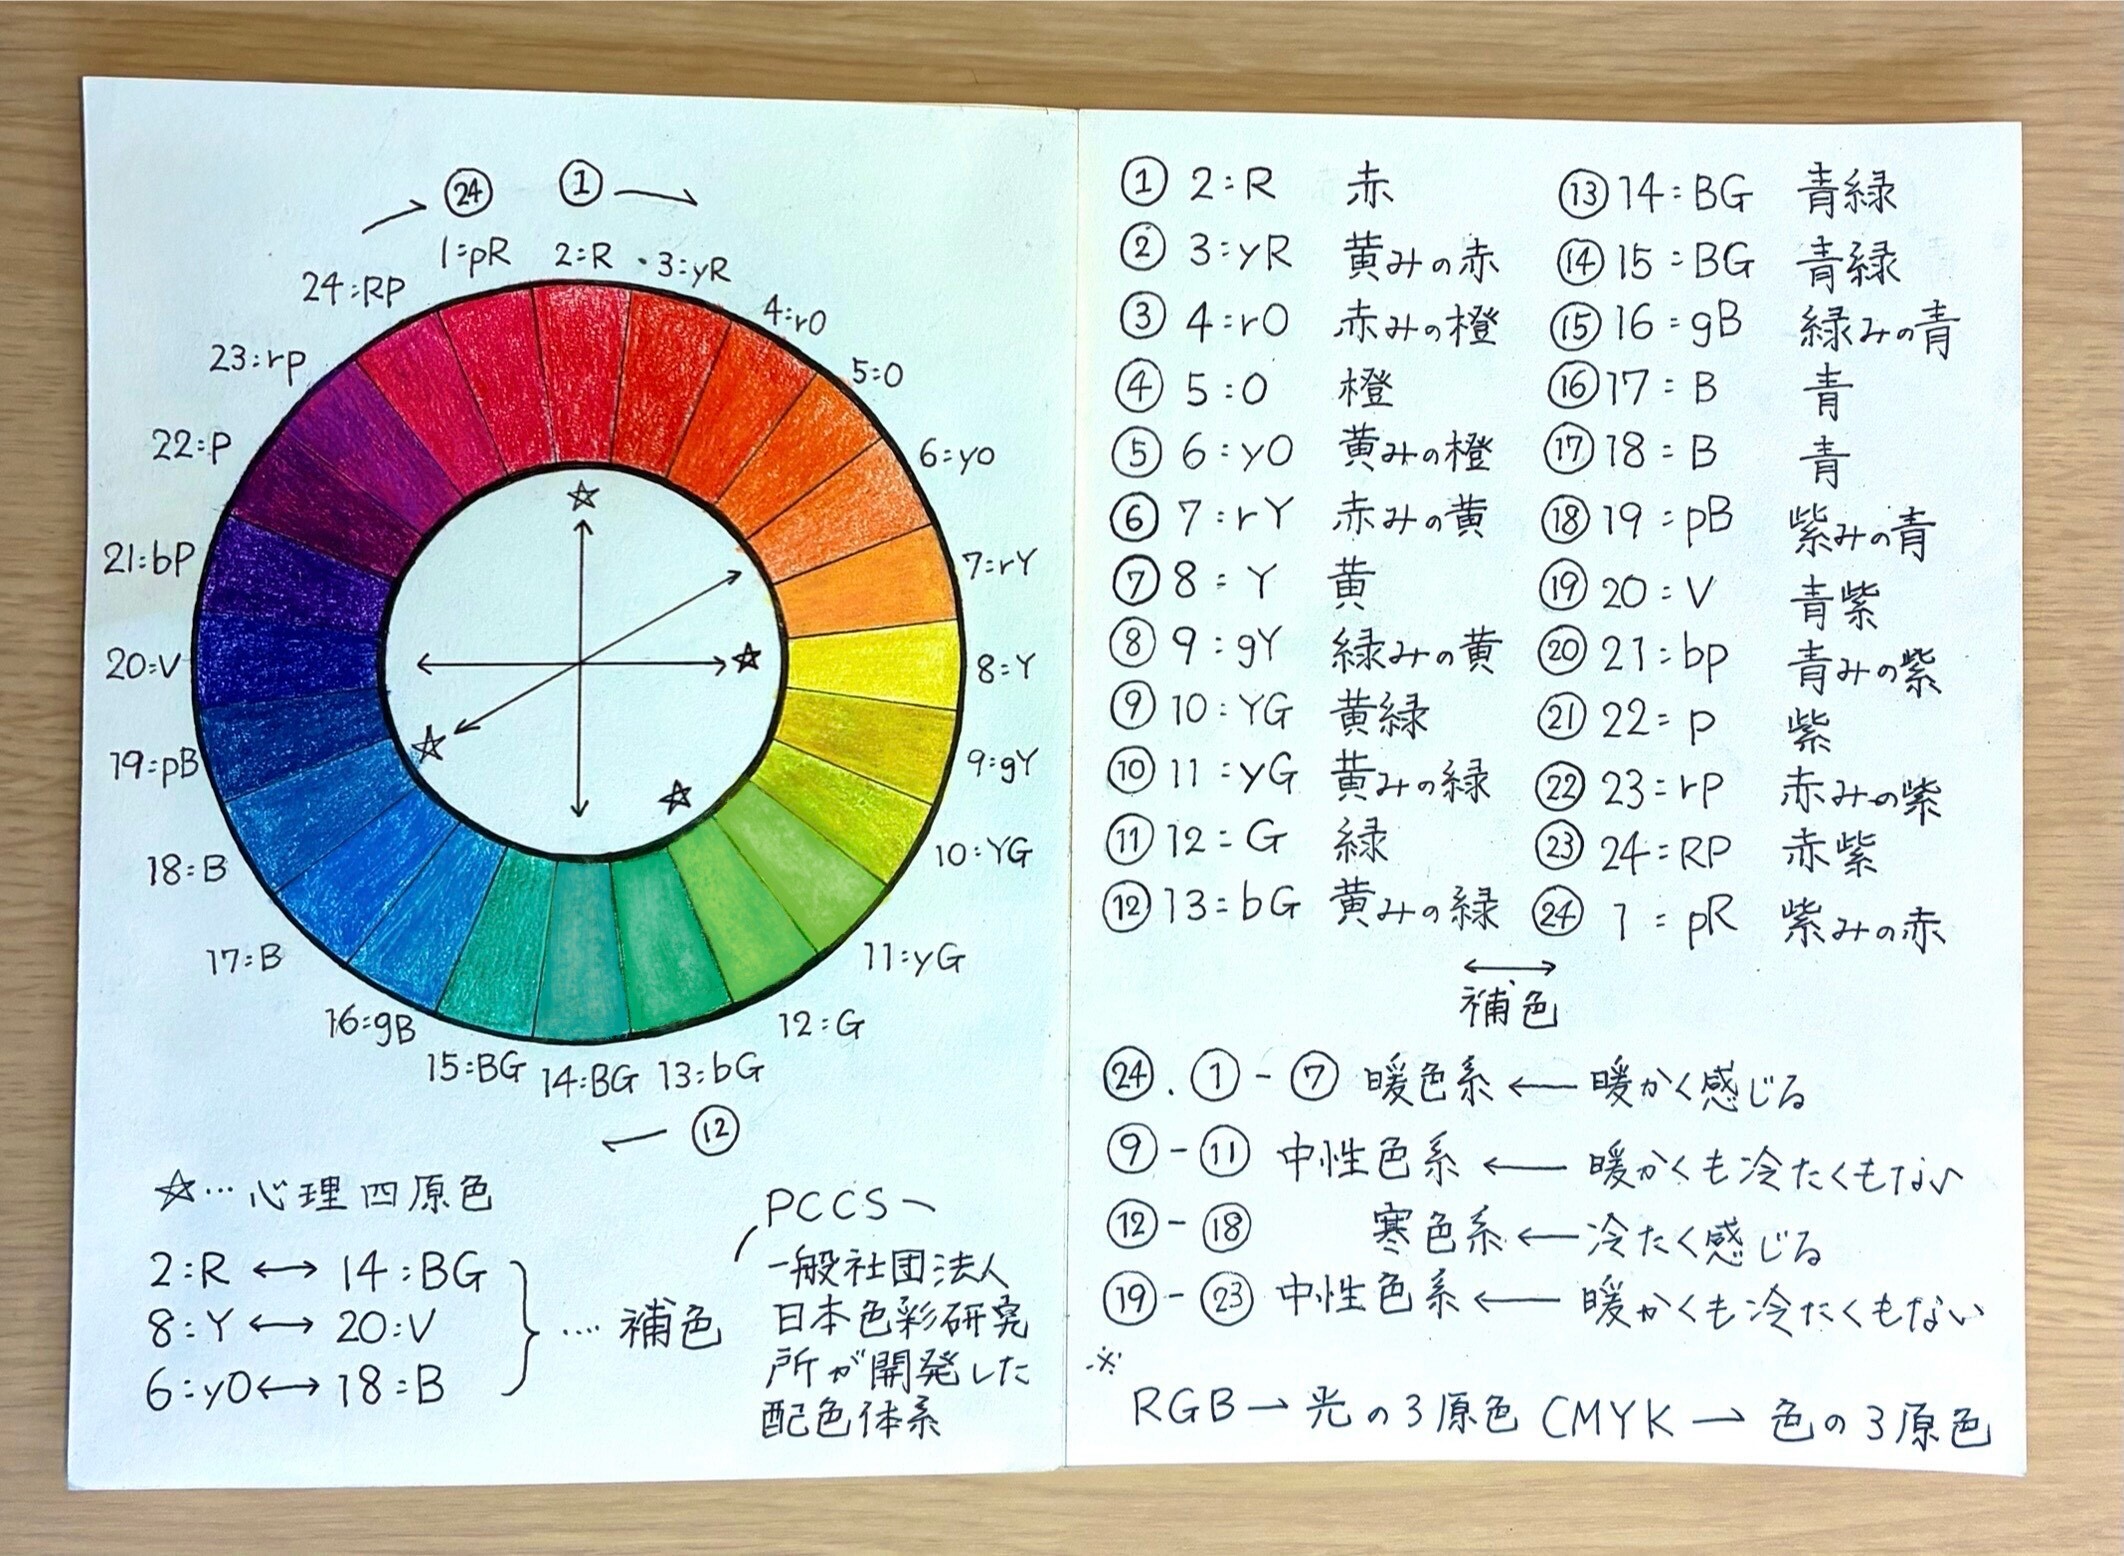 ㉔ ①
1:pR 2:R ・3:yR
4:rO
5:O
6:yO
7:rY
8:Y
9:gY
10:YG
11:yG
12:G
13:bG
14:BG
15:BG
16:gB
17:B
18:B
19:pB
20:V
21:bP
22:P
23:rp
24:RP
⑫
☆…心理四原色
2:R ↔ 14:BG
8:Y ↔ 20:V
6:yO ↔ 18:B
…. 補色
PCCS
一般社団法人
日本色彩研究
所が開発した
配色体系
① 2:R 赤
② 3:yR 黄みの赤
③ 4:rO 赤みの橙
④ 5:O 橙
⑤ 6:yO 黄みの橙
⑥ 7:rY 赤みの黄
⑦ 8:Y 黄
⑧ 9:gY 緑みの黄
⑨ 10:YG 黄緑
⑩ 11:yG 黄みの緑
⑪ 12:G 緑
⑫ 13:bG 黄みの緑
⑬ 14:BG 青緑
⑭ 15:BG 青緑
⑮ 16:gB 緑みの青
⑯ 17:B 青
⑰ 18:B 青
⑱ 19:pB 紫みの青
⑲ 20:V 青紫
⑳ 21:bp 青みの紫
㉑ 22:p 紫
㉒ 23:rP 赤みの紫
㉓ 24:RP 赤紫
㉔ 1:pR 紫みの赤
↔
補色
㉔.①-⑦ 暖色系 ← 暖かく感じる
⑨-⑪ 中性色系 ← 暖かくも冷たくもない
⑫-⑱ 寒色系 ← 冷たく感じる
⑲-㉓ 中性色系 ← 暖かくも冷たくもない
※
RGB→光の3原色 CMYK→色の3原色